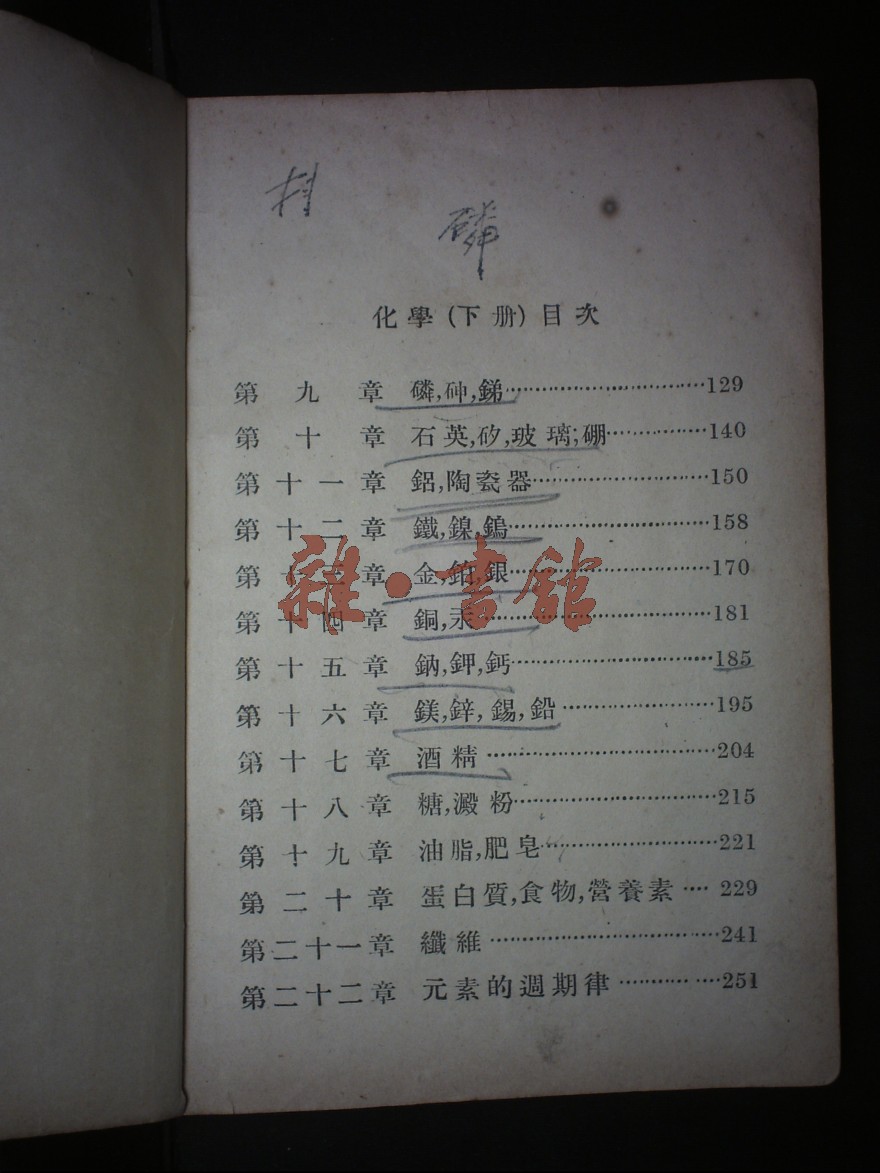 磷
化學(下册)目次
第九章 磷,砷,銻……………………………129
第十章 石英,矽,玻璃;硼……………140
第十一章 鋁,陶瓷器………………………150
第十二章 鐵,鎳,鎢…………………………158
第十三章 金,鉑,銀…………………………170
第十四章 銅,汞………………………………181
第十五章 鈉,鉀,鈣…………………………185
第十六章 鎂,鋅,錫,鉛……………………195
第十七章 酒精………………………………204
第十八章 糖,澱粉…………………………215
第十九章 油脂,肥皂………………………221
第二十章 蛋白質,食物,營養素……229
第二十一章 纖維……………………………241
第二十二章 元素的週期律……………251
雜·書館